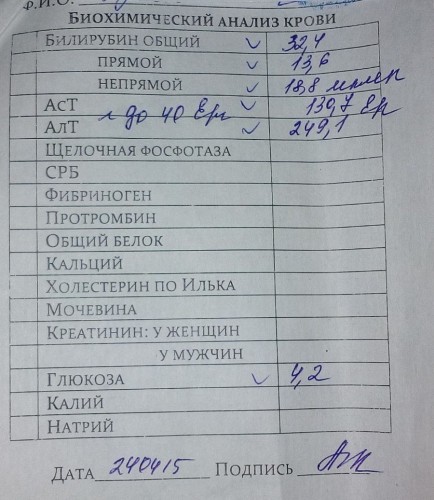 Ф.И.О.
Биохимический анализ крови
Билирубин общий 32,4
прямой 13,6
непрямой 18,8
АсТ 139,7 Ер
АлТ до 40 Ер 249,1
Щелочная фосфотаза
СРБ
Фибриноген
Протромбин
Общий белок
Кальций
Холестерин по Илька
Мочевина
Креатинин: у женщин
у мужчин
Глюкоза 4,2
Калий
Натрий
Дата 240415 Подпись